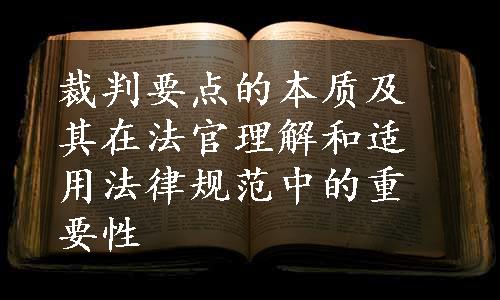 裁判要点的本质及
其在法官理解和适
用法律规范中的重
要性